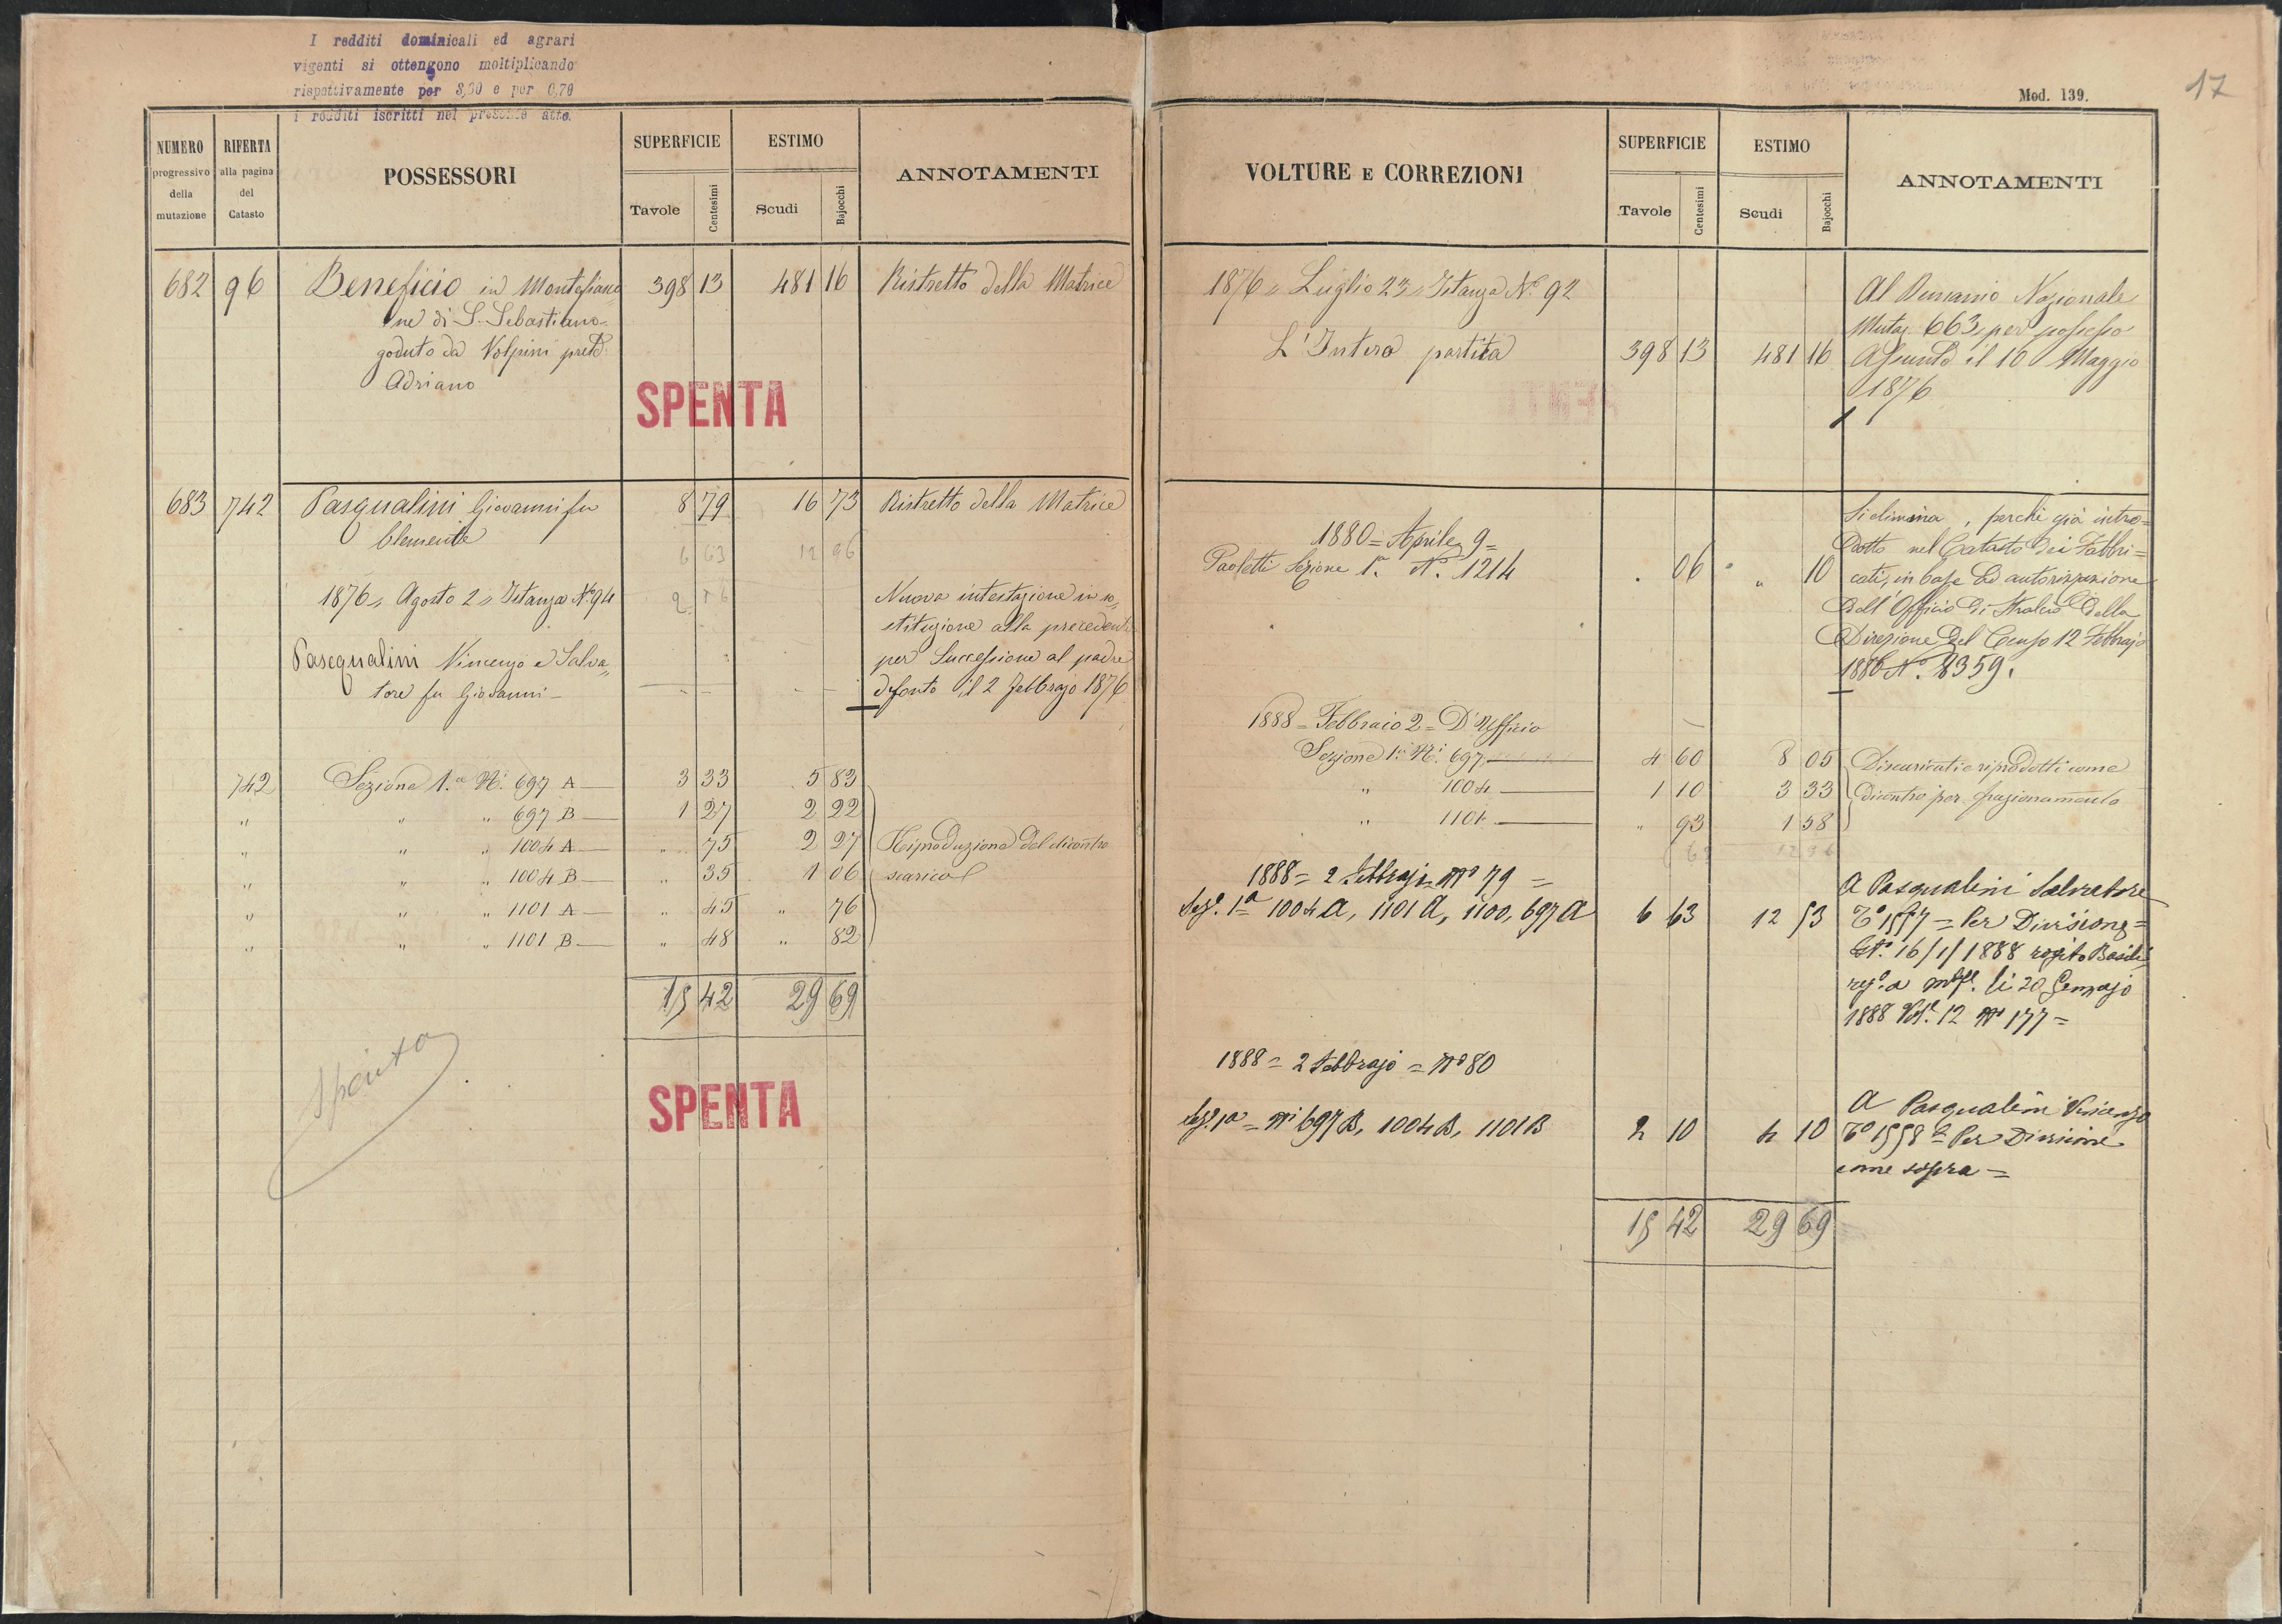 I redditi dominicali ed agrari
vigenti si ottengono moltiplicando
rispettivamente per 3,30 e per 0,70
i redditi iscritti nel presente atto.
NUMERO progressivo della mutazione
RIFERTA alla pagina del Catasto
POSSESSORI
SUPERFICIE
Tavole Centesimi
ESTIMO
Scudi Bajocchi
ANNOTAMENTI
682 96 Beneficio in Montefiano 398 13 481 16 Ristretto della Matrice
ne di S. Sebastiano
goduto da Volpini prete
Adriano
SPENTA
683 742 Pasqualini Giovanni fu 8 79 16 73 Ristretto della Matrice
Clemente
6 63 12 96
1876 „ Agosto 2 „ Istanza N.º 94 2 16 Nuova intestazione in so„
stituzione alla precedente
Pasqualini Vincenzo e Salva„ per Successione al padre
tore fu Giovanni defonto il 2 Febbrajo 1876
742 Sezione 1.a N.i 697 A 3 33 5 83
„ „ „ 697 B 1 27 2 22
„ „ „ 1004 A „ 75 2 27 Riproduzione del dicontro
„ „ „ 1004 B „ 35 1 06 scarico
„ „ „ 1101 A „ 45 „ 76
„ „ „ 1101 B „ 48 „ 82
15 42 29 69
Spenta
SPENTA
17
Mod. 139.
VOLTURE E CORREZIONI
SUPERFICIE
Tavole Centesimi
ESTIMO
Scudi Bajocchi
ANNOTAMENTI
1876 „ Luglio 23 „ Istanza N.º 92 Al Demanio Nazionale
Mutaz. 663, per possesso
L'Intera partita 398 13 481 16 Assunto il 10 Maggio
1876
Si elimina, perchè già intro=
1880 = Aprile 9 = dotto nel Catasto dei Fabbri=
Paoletti Sezione 1.a N. 1214 . 06 „ 10 cati, in base ad autorizzazione
dell'Officio di Stralcio della
Direzione del Censo 12 Febbrajo
1880 N.º 8359.
1888 = Febbraio 2 = D'Ufficio
Sezione 1.a N.i 697 4 60 8 05 Discaricati e riprodotti come
„ 1004 1 10 3 33 dicontro per frazionamento
„ 1101 „ 93 1 58
1888 = 2 Febbrajo N.º 79 = A Pasqualini Salvatore
Sez.e 1a 1004 A, 1101 A, 1100, 697 A 6 63 12 53 T.º 1557 = Per Divisione =
16/1/1888 rogito
li 20 Gennajo
1888 Vol. 12 N.º 177 =
1888 = 2 Febbrajo = N.º 80
A Pasqualini Vincenzo
Sez.e 1a = N.i 697 B, 1004 B, 1101 B 2 10 4 10 T.º 1558 = Per Divisione
come sopra =
15 42 29 69